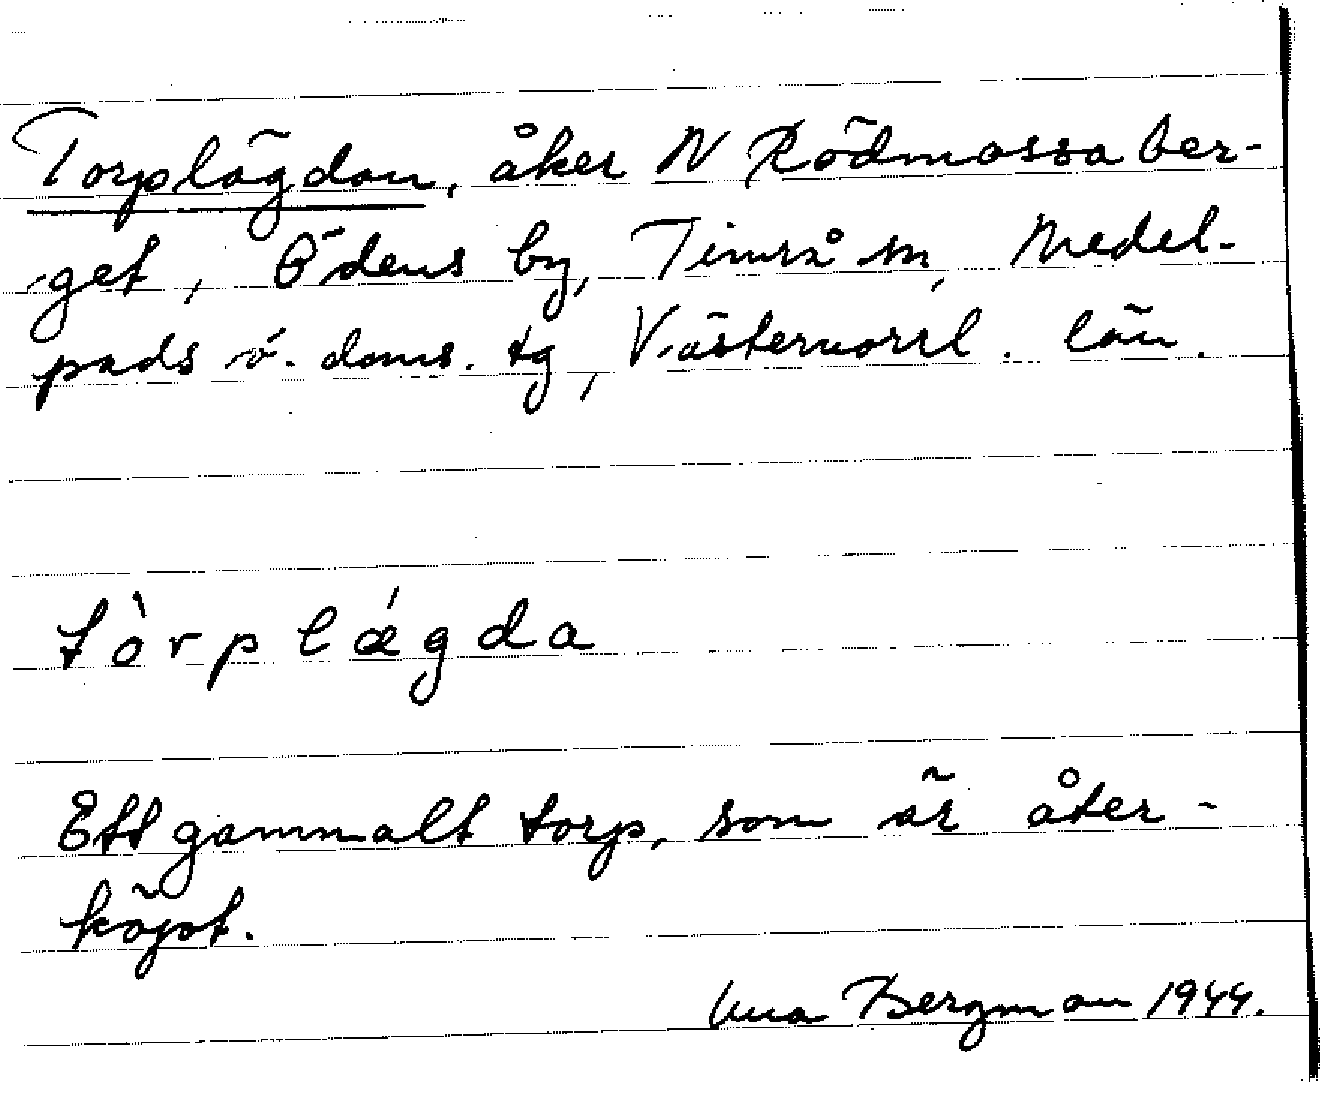 Torplägdan, åker N Rödmossaber-
get, Ödens by, Timrå sn, Medel-
pads v. doms. tg, Västernorrl. län.
tòrplǽgda
Ett gammalt torp, som är åter-
köpt.
Bergman 1944.